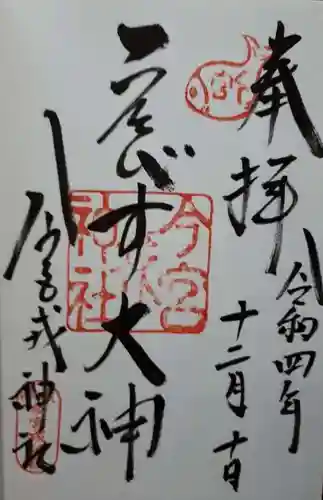 奉拝
令和四年
十二月十日
ゑびす大神
今宮戎神社
今宮戎神社